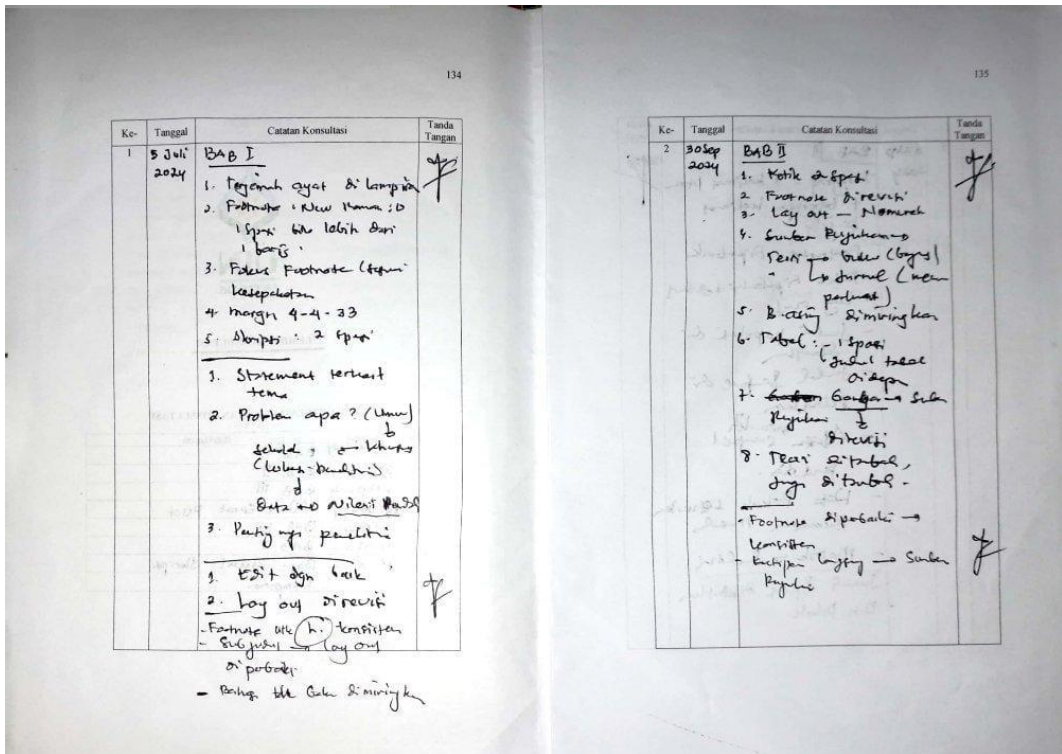 134
Ke- Tanggal Catatan Konsultasi Tanda Tangan
1 5 Juli 2024 BAB I
1. Terjemah ayat di lampiran
2. Footnote : New Roman : 10
1 spasi bila lebih dari
1 baris.
3. Fokus Footnote (sesuai
kesepakatan
4. Margin 4-4-33
5. Skripsi : 2 spasi
1. Statement terkait
tema
2. Problem apa? (Umum)
sekolah, Khusus
(lokasi penelitian)
Data Nilai
3. Penting nya penelitian
1. Edit dgn baik
2. Lay out direvisi
- Footnote utk h. konsisten
- Sub judul lay out
diperbaiki
- Bahasa tdk baku dimiringkan
135
Ke- Tanggal Catatan Konsultasi Tanda Tangan
2 30 Sep 2024 BAB II
1. Ketik 2 spasi
2 Footnote direvisi
3. Lay out - Nomerah
4. Sumber Rujukan
Teori buku (bagus)
Jurnal (mem
perkuat)
5. B. asing - dimiringkan
6. Tabel : - 1 spasi
judul tabel
didepan
7. Gambar Sumber
Rujukan
direvisi
8. Teori ditambah,
juga ditambah -
- Footnote diperbaiki
konsisten
- Kutipan langsung Sumber
Rujukan